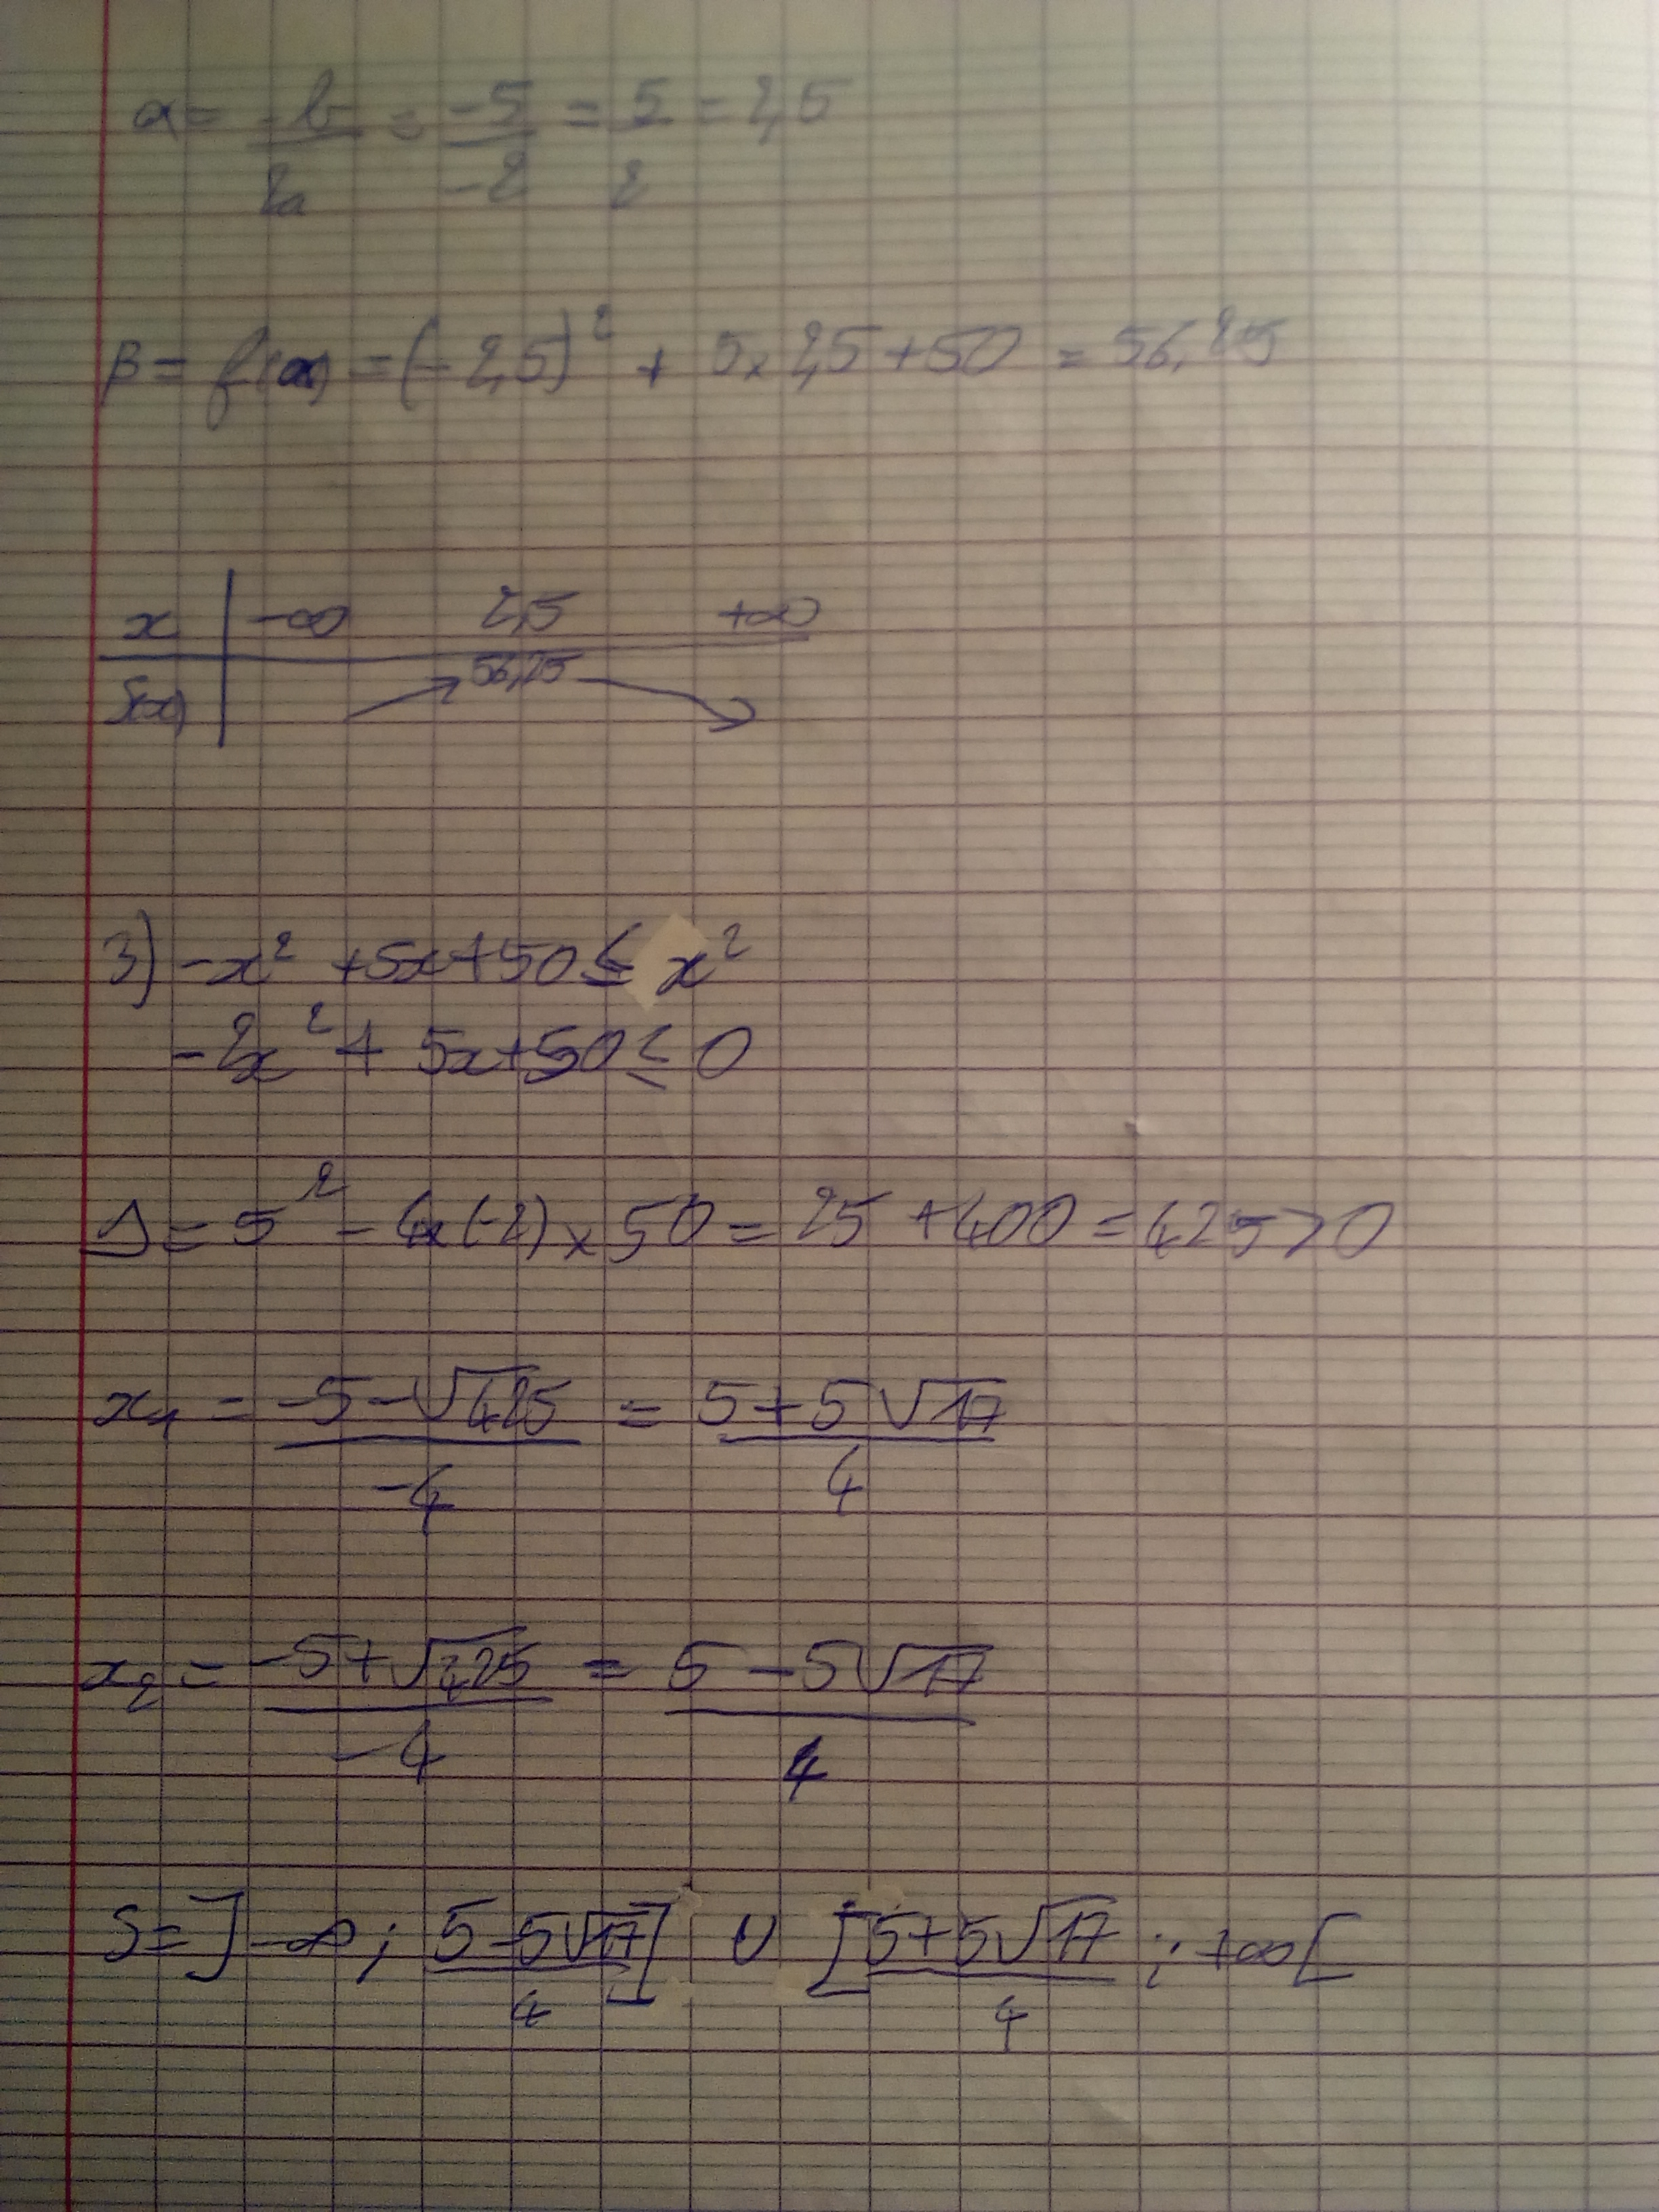 α = -b/2a = -5/-2 = 5/2 = 2,5
β = f(α) = (-2,5)² + 5×2,5+50 = 56,25
x | -∞ 2,5 +∞
f(x) | 56,25
3) -x² +5x+50 ≤ x²
-2x² + 5x+50 ≤ 0
Δ = 5² - 4×(-2)×50 = 25 +400 = 425>0
x₁ = (-5-√425)/-4 = (5+5√17)/4
x₂ = (-5+√425)/-4 = (5-5√17)/4
S = ]-∞; (5-5√17)/4] ∪ [(5+5√17)/4 ; +∞[